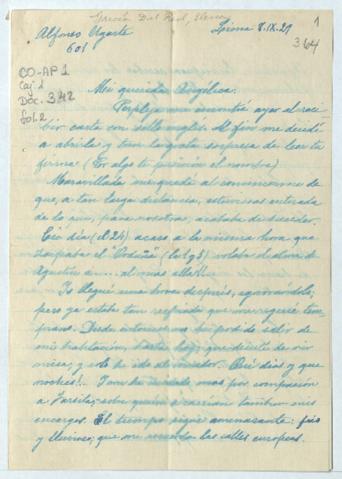 García Del Real, Elena
Alfonso Ugarte
601
Lima 8.IX.27
1
364
CO-AP1
Caj. 1
Doc. 342
fol. 2
Mi querida Angélica:
Perpleja me encontré ayer al reci-
bir carta con sello inglés. Al fin me decidí
a abrirla y tan larga la sorpresa de leer tu
firma (En algo te pusieron el nombre)
Maravillada me quedé al convencerme de
que, a tan larga distancia, estuvieras enterada
de lo que, para nosotras, acababa de suceder.
Ese día (el 24) acaso a la misma hora que
zarpaba el "Orduña" volaba el alma de
Agustín a.... al más allá!!
Yo llegué una hora después, agarrándole;
pero ya estaba tan resfriada que me regresé tem-
prano. Desde entonces no he podido salir de
mi habitación, hasta hoy que dejaste de oír
misa, y solo he ido al comedor. Qué días y que
noches!.. más por compasión
a sobre quien también mis
encargos. El tiempo sigue amenazante: frío
y lluvioso; que me recuerda las calles europeas.